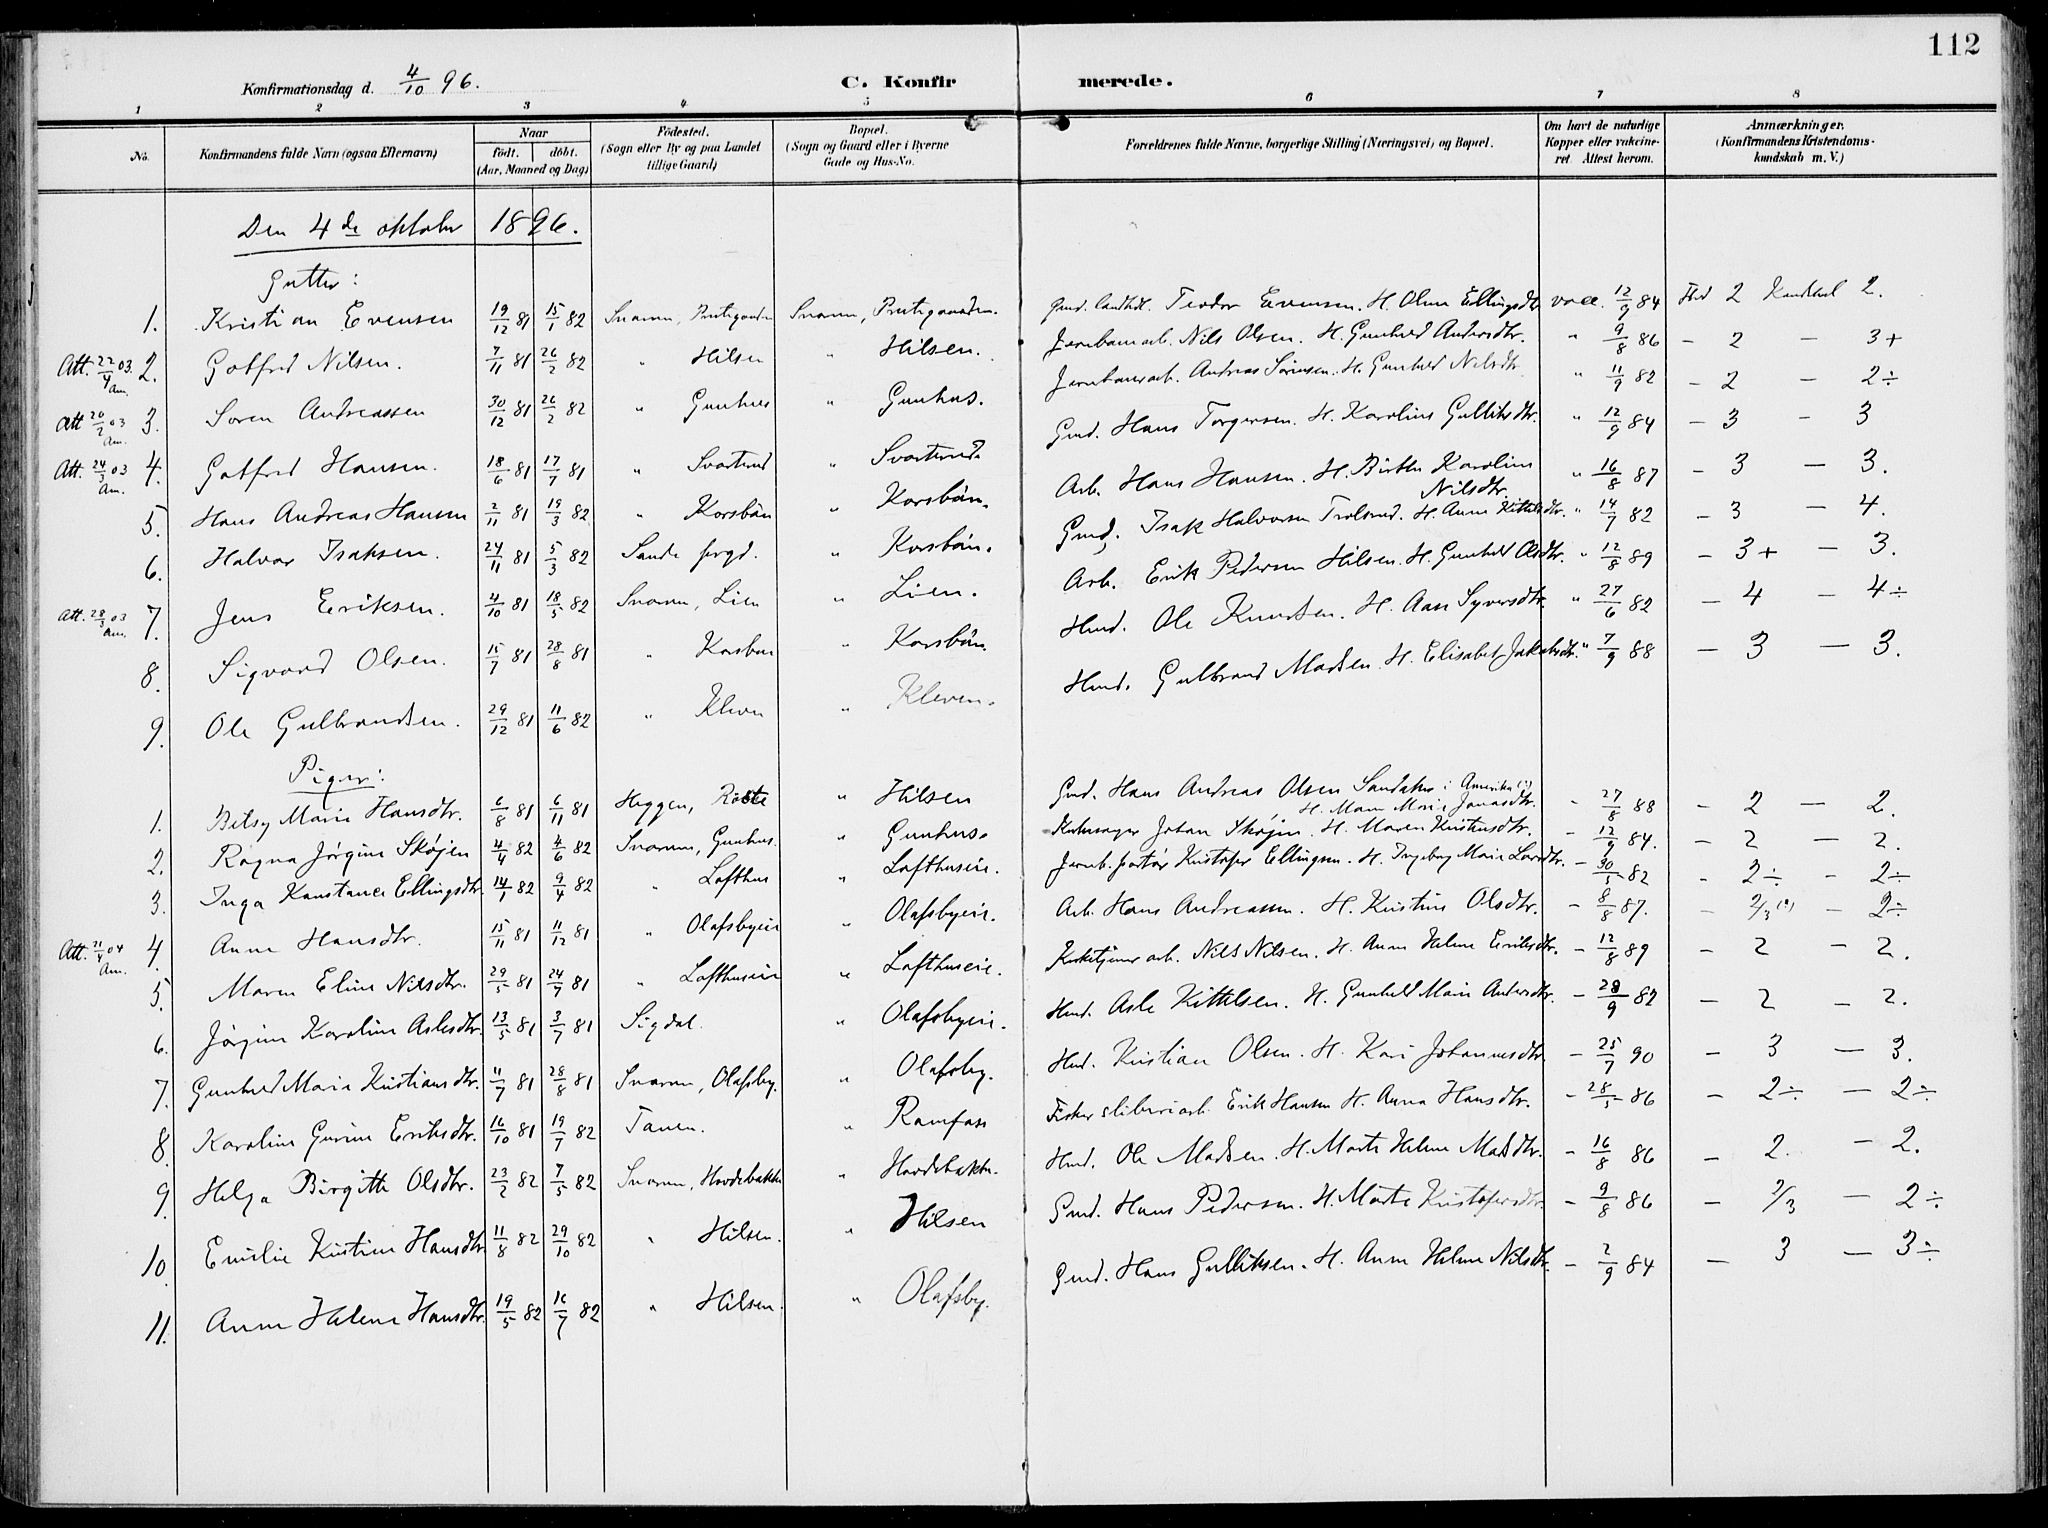 112
Konfirmationsdag d. 4/10 96.
C. Konfirmerede.
1 2 3 4 5 6 7 8
No.
Konfirmandens fulde Navn (ogsaa Efternavn)
Naar
födt. döbt.
(Aar, Maaned og Dag)
Födested.
(Sogn eller By og paa Landet
tillige Gaard)
Bopæl.
(Sogn og Gaard eller i Byerne
Gade og Hus-No.
Forældrenes fulde Navne, borgerlige Stilling (Næringsvei) og Bopæl.
Om havt de naturlige
Kopper eller vakcine-
ret Attest herom.
Anmærkninger.
(Konfirmandens Kristendoms-
kundskab m. V.)
Den 4de oktober 1896.
Gutter:
1. Kristian Evensen 19/12 81 15/1 82 Snarum, Snarum, Teodor Evensen. H. Oline Ellingsdtr. vacc. 12/9 84 Flid 2 Kundskab 2.
Att. 22/4 03. Am. 2. Gotfred Nilsen. 7/11 81 26/2 82 " Hilsen " Hilsen. Jernbanearb. Nils Olsen. H. Gunhild Andersdtr. " 9/8 86 - 2 - 3+
Att. 26/2 03 Am. 3. Soren Andreassen 30/12 81 26/2 82 " Gunhus " Gunhus. Jernbanearb. Andreas Sörensen. H. Gunhild Nilsdtr. " 11/9 82 - 2 - 2÷
Att. 24/3 03 Am. 4. Gotfred Hansen. 18/6 81 17/7 81 " Svarterud " Svarterud. Gmd. Hans Torgersen. H. Karoline Gulliksdtr. " 12/9 84 - 3 - 3
5. Hans Andreas Hansen 2/11 81 19/3 82 " Korsbön " Korsbön. Arb. Hans Hansen. H. Birthe Karoline Nilsdtr. " 16/8 87 - 3 - 3.
6. Halvor Isaksen. 24/11 81 5/3 82 Sande prgd. " Korsbön. Gmd. Isak Halvorsen H. Anne Kittilsdtr. " 14/7 82 - 3 - 4.
Att. 28/3 03 Am. 7. Jens Eriksen. 4/10 81 18/5 82 Snarum, Lien " Lien. Arb. Erik Pedersen Hilsen. H. Gunhild Olsdtr. " 12/8 89 - 3+ - 3.
8. Sigvard Olsen. 15/7 81 28/8 81 " Korsbøn " Korsbön. Hmd. Ole Knudsen. H. Aase Syversdtr. " 27/6 82 - 4 - 4÷
9. Ole Gulbrandsen. 29/12 81 11/6 82 " Kleven " Kleven. Hmd. Gulbrand Madsen. H. Elisabet Jakobsdtr. " 7/9 88 - 3 - 3.
Piger:
1. Betsy Marie Hansdtr. 6/8 81 6/11 81 Heggen, " Hilsen Gmd. Hans Andreas Olsen i Amerika (?) H. Maren Marie Jonasdtr. - 27/8 88 - 2 - 2.
2. Ragna Jørgine Skøjen 4/4 82 4/6 82 Snarum, Gunhus. " Gunhus. Johan Skøjen. H. Maren Kristensdtr. - 12/9 84. - 2 - 2.
3. Inga Konstance Ellingsdtr. 14/1 82 9/4 82 " Lofthus " Lofthuseie. Kristofer Ellingsen. H. Ingeborg Marie Larsdtr. - 30/5 82 - 2÷ - 2÷
Att. 21/4 04 Am. 4. Anne Hansdtr. 15/11 81 11/12 81 " Olafsbyeie " Olafsbyeie. Arb. Hans Andreassen. H. Kristine Olsdtr. - 8/8 87. - 2/3 (?) - 2÷
5. Maren Eline Nilsdtr. 29/5 81 24/7 81 " Lofthuseie " Lofthuseie. Nils Nilsen. H. Anne Helene Eriksdtr. - 12/8 89 - 2 - 2.
6. Jörgine Karoline Aslesdtr. 13/5 81 3/7 81 Sigdal. " Olafsbyeie. Hmd. Asle Kittelsen. H. Gunhild Marie Andersdtr. - 28/9 82 - 2 - 2.
7. Gunhild Marie Kristiansdtr. 11/7 81 28/8 81 Snarum, Olafsby. " Olafsby. Hmd. Kristian Olsen. H. Kari Johannesdtr. - 25/7 90 - 3 - 3.
8. Karoline Gurine Eriksdtr. 16/10 81 19/7 82 " Ramfoss Erik Hansen H. Anna Hansdtr. - 28/5 86 - 2÷ - 2÷
9. Helga Birgitte Olsdtr. 23/2 82 7/5 82 Snarum, Hovdebakke " Hovdebakke. Hmd. Ole Madsen. H. Marte Helene Madsdtr. - 16/8 86 - 2. - 2.
10. Emilie Kristine Hansdtr. 11/8 82 29/10 82 " Hilsen. " Hilsen Gmd. Hans Pedersen. H. Marte Kristofersdtr. - 9/8 86 - 2/3 - 2÷
11. Anne Helene Hansdtr. 19/5 82 16/7 82 " Hilsen. " Olafsby. Gmd. Hans Gulliksen. H. Anne Helene Nilsdtr. - 2/9 84 - 3 - 3÷